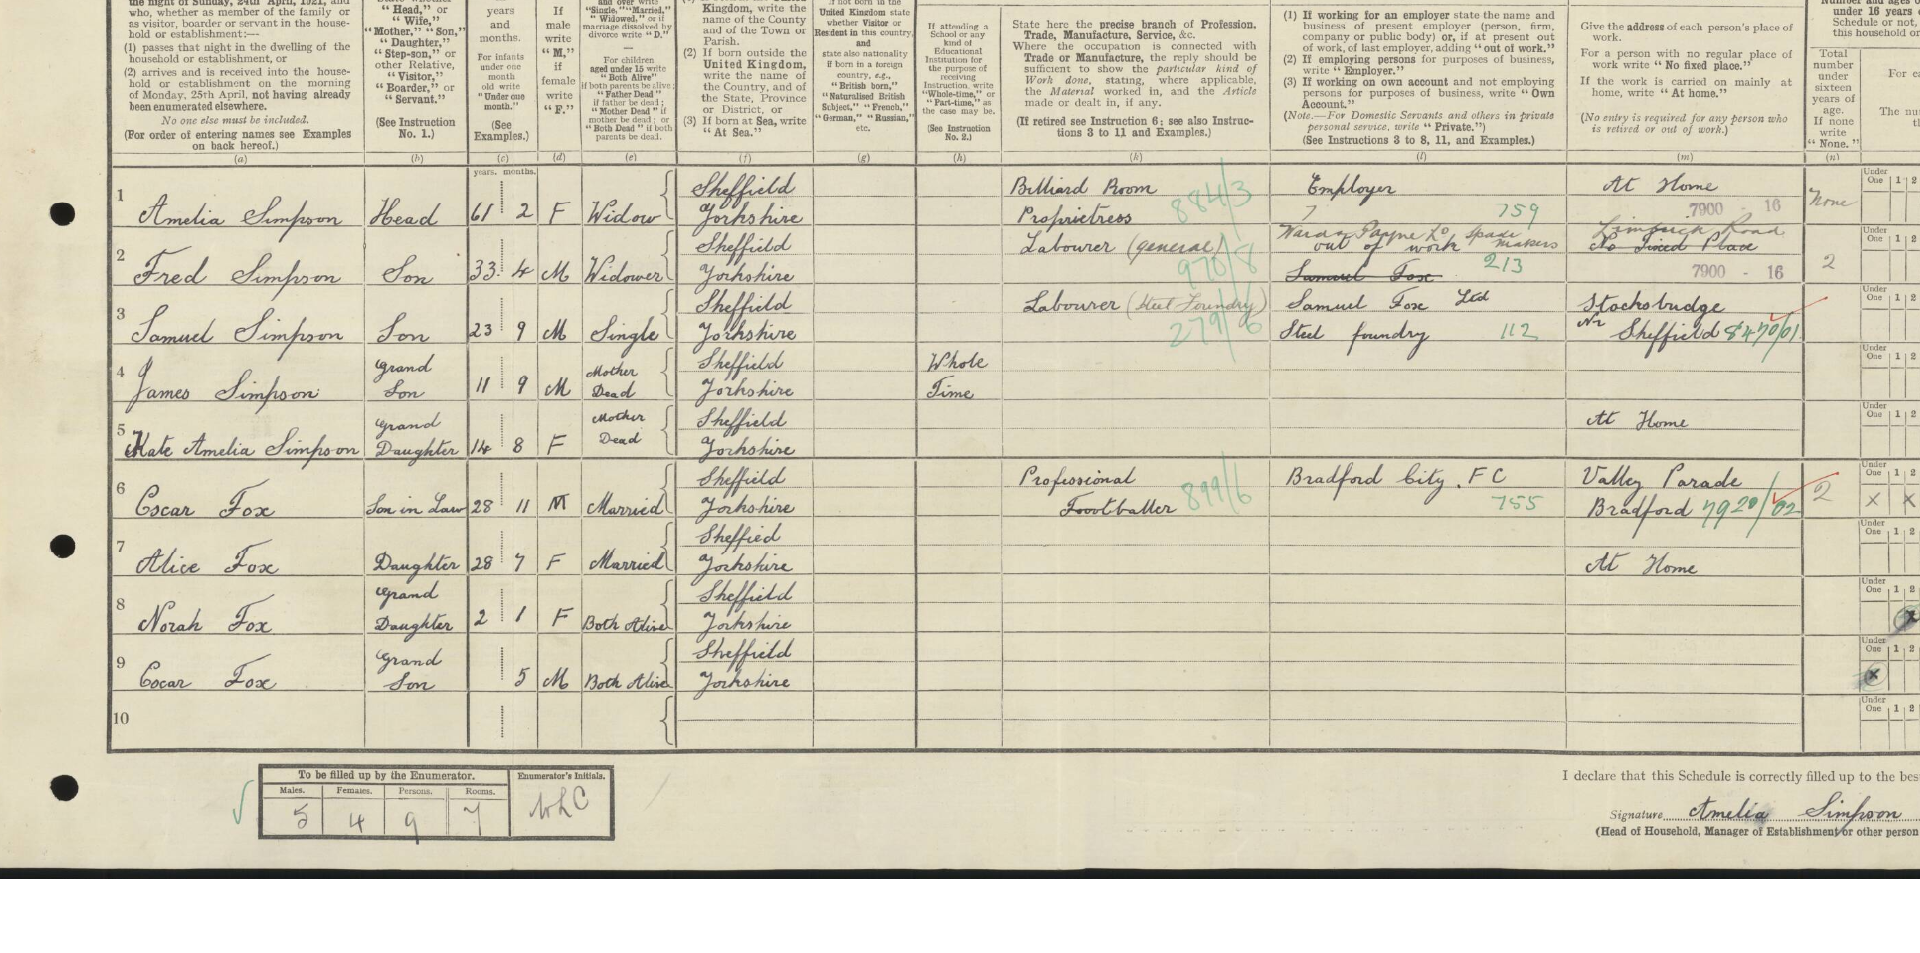 the night of Sunday, 24th April, 1921, and
who, whether as member of the family or
as visitor, boarder or servant in the house-
hold or establishment:—
(1) passes that night in the dwelling of the
household or establishment, or
(2) arrives and is received into the house-
hold or establishment on the morning
of Monday, 25th April, not having already
been enumerated elsewhere.
No one else must be included.
(For order of entering names see Examples
on back hereof.)
(a)
"Head," or
"Wife,"
"Mother," "Son,"
"Daughter,"
"Step-son," or
other Relative,
"Visitor,"
"Boarder," or
"Servant."
(See Instruction
No. 1.)
(b)
years
and
months.
For infants
under one
month
old write
"Under one
month."
(See
Examples.)
(c)
If
male
write
"M,"
if
female
write
"F."
(d)
and over write
"Single," "Married,"
"Widowed," or if
marriage dissolved by
divorce write "D."
—
For children
aged under 15 write
"Both Alive"
if both parents be alive;
"Father Dead"
if father be dead;
"Mother Dead" if
mother be dead; or
"Both Dead" if both
parents be dead.
(e)
Kingdom, write the
name of the County
and of the Town or
Parish.
(2) If born outside the
United Kingdom,
write the name of
the Country, and of
the State, Province
District, or
(3) If born at Sea, write
"At Sea."
(f)
If not born in the
United Kingdom state
whether Visitor or
Resident in this country,
and
state also nationality
if born in a foreign
country, e.g.,
"British born,"
"Naturalised British
Subject," "French,"
"German," "Russian,"
etc.
(g)
If attending a
School or any
kind of
Educational
Institution for
the purpose of
receiving
Instruction, write
"Whole-time," or
"Part-time," as
the case may be.
(See Instruction
No. 2.)
(h)
State here the precise branch of Profession,
Trade, Manufacture, Service, &c.
Where the occupation is connected with
Trade or Manufacture, the reply should be
sufficient to show the particular kind of
Work done, stating, where applicable,
the Material worked in, and the Article
made or dealt in, if any.
(If retired see Instruction 6; see also Instruc-
tions 3 to 11 and Examples.)
(k)
(1) If working for an employer state the name and
business of present employer (person, firm,
company or public body) or, if at present out
of work, of last employer, adding "out of work."
(2) If employing persons for purposes of business,
write "Employer."
(3) If working on own account and not employing
persons for purposes of business, write "Own
Account."
(Note.—For Domestic Servants and others in private
personal service, write "Private.")
(See Instructions 3 to 8, 11, and Examples.)
(l)
Give the address of each person's place of
work.
For a person with no regular place of
work write "No fixed place."
If the work is carried on mainly at
home, write "At home."
(No entry is required for any person who
is retired or out of work.)
(m)
under 16 years o
Schedule or not,
this household or
Total
number
under
sixteen
years of
age.
If none
write
"None."
(n)
years. months.
1 Amelia Simpson Head 61 2 F Widow Sheffield Yorkshire Billiard Room Proprietress 884/3 Employer 7 759 At Home 7900 - 16 None
2 Fred Simpson Son 33 4 M Widower Sheffield Yorkshire Labourer (general) 970/8 Ward & Payne Ld Spade makers out of work Samuel Fox 213 Limbrick Road No Fixed Place 7900 - 16 2
3 Samuel Simpson Son 23 9 M Single Sheffield Yorkshire Labourer (Steel Foundry) 279/6 Samuel Fox Ltd Steel foundry 112 Stocksbridge Nr Sheffield 8470/01
4 James Simpson Grand Son 11 9 M Mother Dead Sheffield Yorkshire Whole Time
5 Kate Amelia Simpson Grand Daughter 14 8 F Mother Dead Sheffield Yorkshire At Home
6 Oscar Fox Son in Law 28 11 M Married Sheffield Yorkshire Professional Footballer 899/6 Bradford City. F C 755 Valley Parade Bradford 7920/02 2 x x
7 Alice Fox Daughter 28 7 F Married Sheffied Yorkshire At Home
8 Norah Fox Grand Daughter 2 1 F Both Alive Sheffield Yorkshire x
9 Oscar Fox Grand Son 5 M Both Alive Sheffield Yorkshire x
10
Under One 1 2
To be filled up by the Enumerator.
Males. Females. Persons. Rooms.
5 4 9 7
Enumerator's Initials.
WLC
I declare that this Schedule is correctly filled up to the bes
Signature Amelia Simpson
(Head of Household, Manager of Establishment or other person